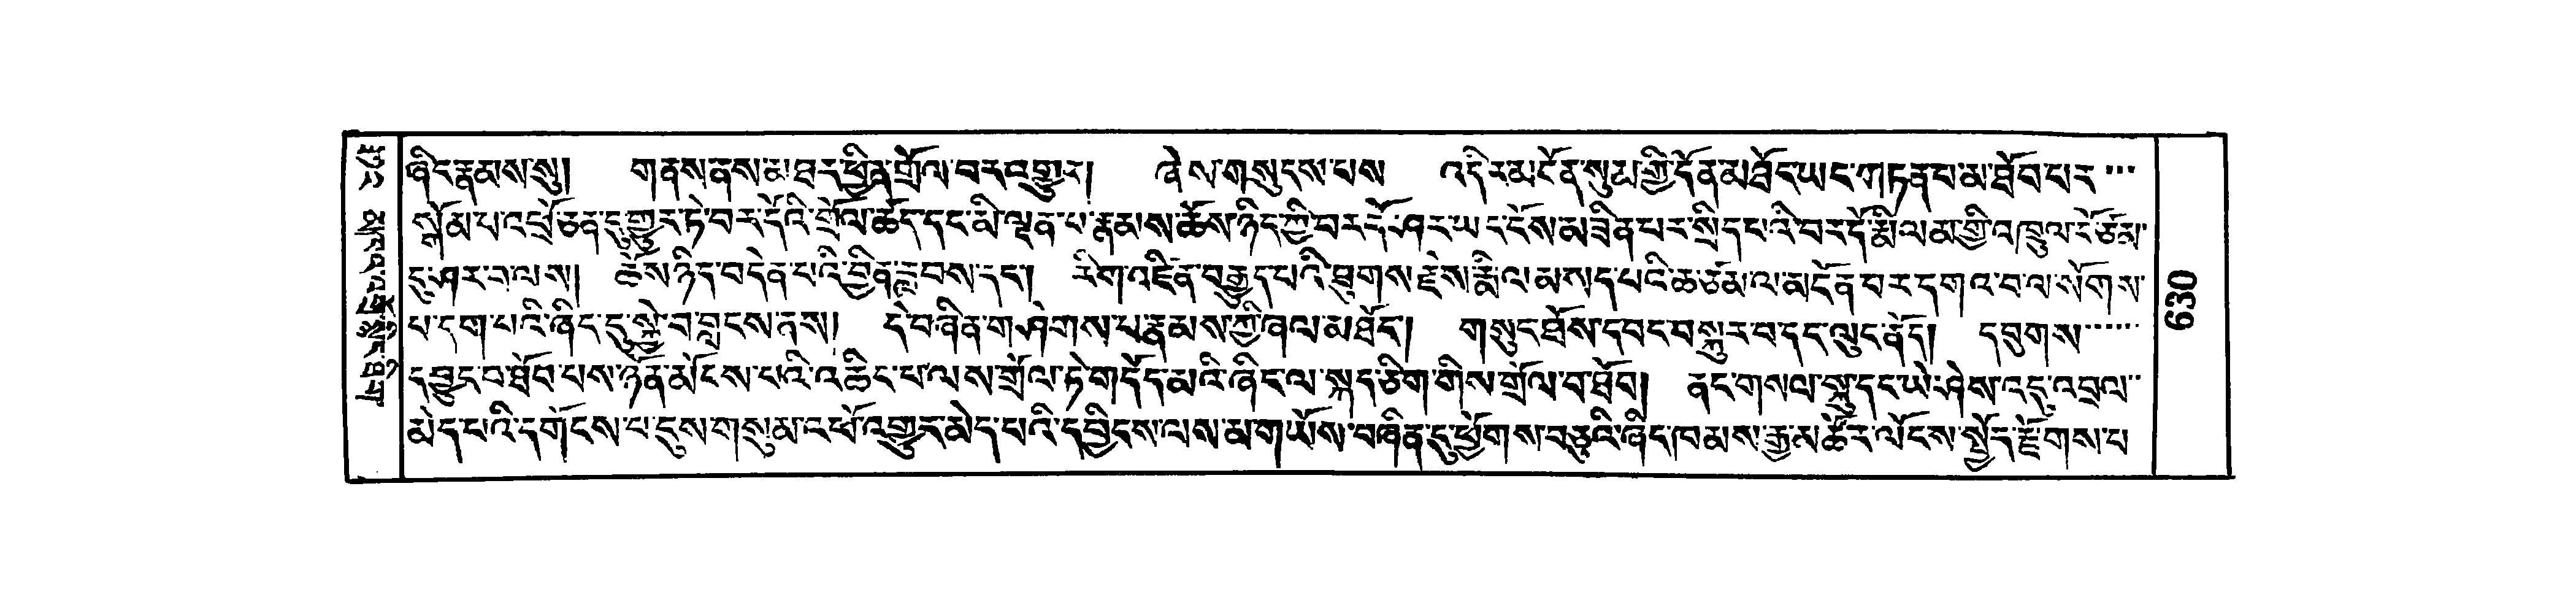 ཞིང་རྣམས་སུ། གནས་ནས་མཐར་ཕྱིན་གྲོལ་བར་འགྱུར། ཞེས་གསུངས་པས འདིར་མངོན་སུམ་གྱི་དོན་མཐོང་ཡང་གཏན་བ་མ་ཐོབ་པར་་་
སྒོམ་པ་འཕྲོ་ཅན་དུ་གྱུར་ཏེ་བར་དོའི་གྲོལ་ཚོད་དང་མི་ལྡན་པ་རྣམས་ཆོས་ཉིད་ཀྱི་བར་དོ་ཤར་ཡང་ངོས་མ་ཟིན་པར་སྲིད་པའི་བར་དོ་རྨི་ལམ་གྱི་འཁྲུལ་ངོ་ཙམ་
དུ་ཤར་བ་ལས། ཆོས་ཉིད་བདེན་པའི་བྱིན་རླབས་དང་། རིག་འཛིན་བརྒྱུད་པའི་ཐུགས་རྗེས་རྨི་ལམ་སད་པའི་ཆ་ཙམ་ལ་མངོན་པར་དགའ་བ་ལ་སོགས་
པ་དག་པའི་ཞིང་དུ་སྐྱེ་བ་བླངས་ནས། དེ་བཞིན་གཤེགས་པ་རྣམས་ཀྱི་ཞལ་མཐོང་། གསུང་ཐོས་དབང་བསྐུར་བ་དང་ལུང་ནོད། དབུགས་་་་་་
དབྱུང་བ་ཐོབ་པས་ཉོན་མོངས་པའི་འཆིང་བ་ལས་གྲོལ་ཏེ་གདོད་མའི་ཞིང་ལ་སྐད་ཅིག་གིས་གྲོལ་བ་ཐོབ། ནང་གསལ་སྐུ་དང་ཡེ་ཤེས་འདུ་འབྲལ་་
མེད་པའི་དགོངས་པ་དུས་གསུམ་འཕོ་འགྱུར་མེད་པའི་དབྱིངས་ལས་མ་གཡོས་བཞིན་དུ་ཕྱོགས་བཅུའི་ཞིང་ཁམས་རྒྱ་མཚོར་ལོངས་སྤྱོད་རྫོགས་པ